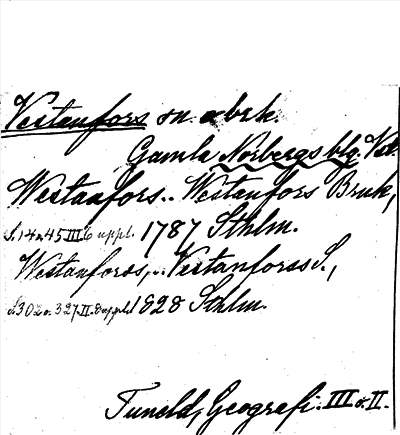 Vestanfors sn. o. brk.
Gamla Norbergs blg. Vstl.
Westanfors.. Westanfors Bruk,
S. 14 o. 45 III 6 uppl. 1787 Sthlm.
Westanforss,.. Vestanforss S.,
S. 302 o. 327 II 8 uppl. 1828 Sthlm.
Tuneld, Geografi. III o. II.